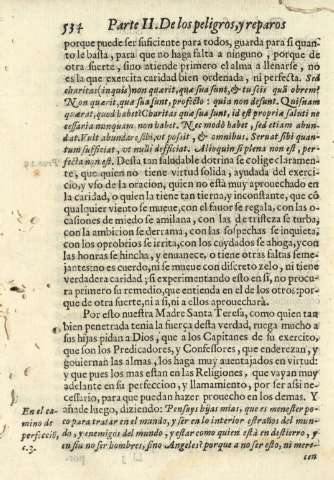 534 Parte II. De los peligros, y reparos
porque puede ser suficiente para todos, guarda para si quan-
to le basta, para que no haga falta a ninguno, porque de
otra suerte, sino atiende primero el alma a llenarse, no
es la que exercita caridad bien ordenada, ni perfecta. Sed
charitas (inquis) non quærit, quæ sua sunt, & tu scis quâ obrem?
Non quærit, quæ sua sunt, profecto: quia non desunt. Quisnam
quærat, quod habet? Charitas quæ sua sunt, id est propriæ saluti ne
cessaria nunquam non habet. Nec modò habet, sed etiam abun-
dat. Vult abundare sibi, vt possit, & omnibus. Seruat sibi quan-
tum sufficiat, vt nulli deficiat. Alioquin si plena non est, per-
fecta non est. Desta tan saludable dotrina se colige claramen-
te, que quien no tiene virtud solida, ayudada del exerci-
cio, y vso de la oracion, quien no està muy aprouechado en
la caridad, o quien la tiene tan tierna, y inconstante, que cō
qualquier viento se mueue, con el fauor se regala, con las o-
casiones de miedo se amilana, con las de tristeza se turba,
con la ambicion se derrama, con las sospechas se inquieta,
con los oprobrios se irrita, con los cuydados se ahoga, y con
las honras se hincha, y enuanece, o tiene otras faltas seme-
jantes: no es cuerdo, ni se mueue con discreto zelo, ni tiene
verdadera caridad, si experimentando esto en si, no procu-
ra primero su remedio, que entienda en el de los otros: por
que de otra suerte, ni a si, ni a ellos aprouecharà.
Por esto nuestra Madre Santa Teresa, como quien tan
bien penetrada tenia la fuerça desta verdad, ruega mucho a
sus hijas pidan a Dios, que a los Capitanes de su exercito,
que son los Predicadores, y Confessores, que enderezan, y
gouiernan las almas, los haga muy auentajados en virtud:
y que pues los mas estan en las Religiones, que vayan muy
adelante en su perfeccion, y llamamiento, por ser assi ne-
cessario, para que puedan hazer prouecho en los demas. Y
añade luego, diziendo: Pensays hijas mias, que es menester po-
co para tratar en el mundo, y ser en lo interior estraños del mun-
do, y enemigos del mundo, y estar como quien està en destierro, y
en fin no ser hombres, sino Angeles? porque a no ser esto, ni mere-
cen
En el ca-
mino de
perfecciō,
c.3.